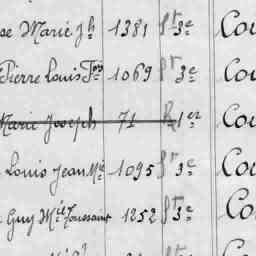 se Marie Jh 1381 St 3e Cou
Pierre Louis Fois 1069 St 3e Cou
Marie Joseph 71 1er Cou
Louis Jean Mie 1095 St 3e Cou
Guy Mie Toussaint 1252 St 3e Cou